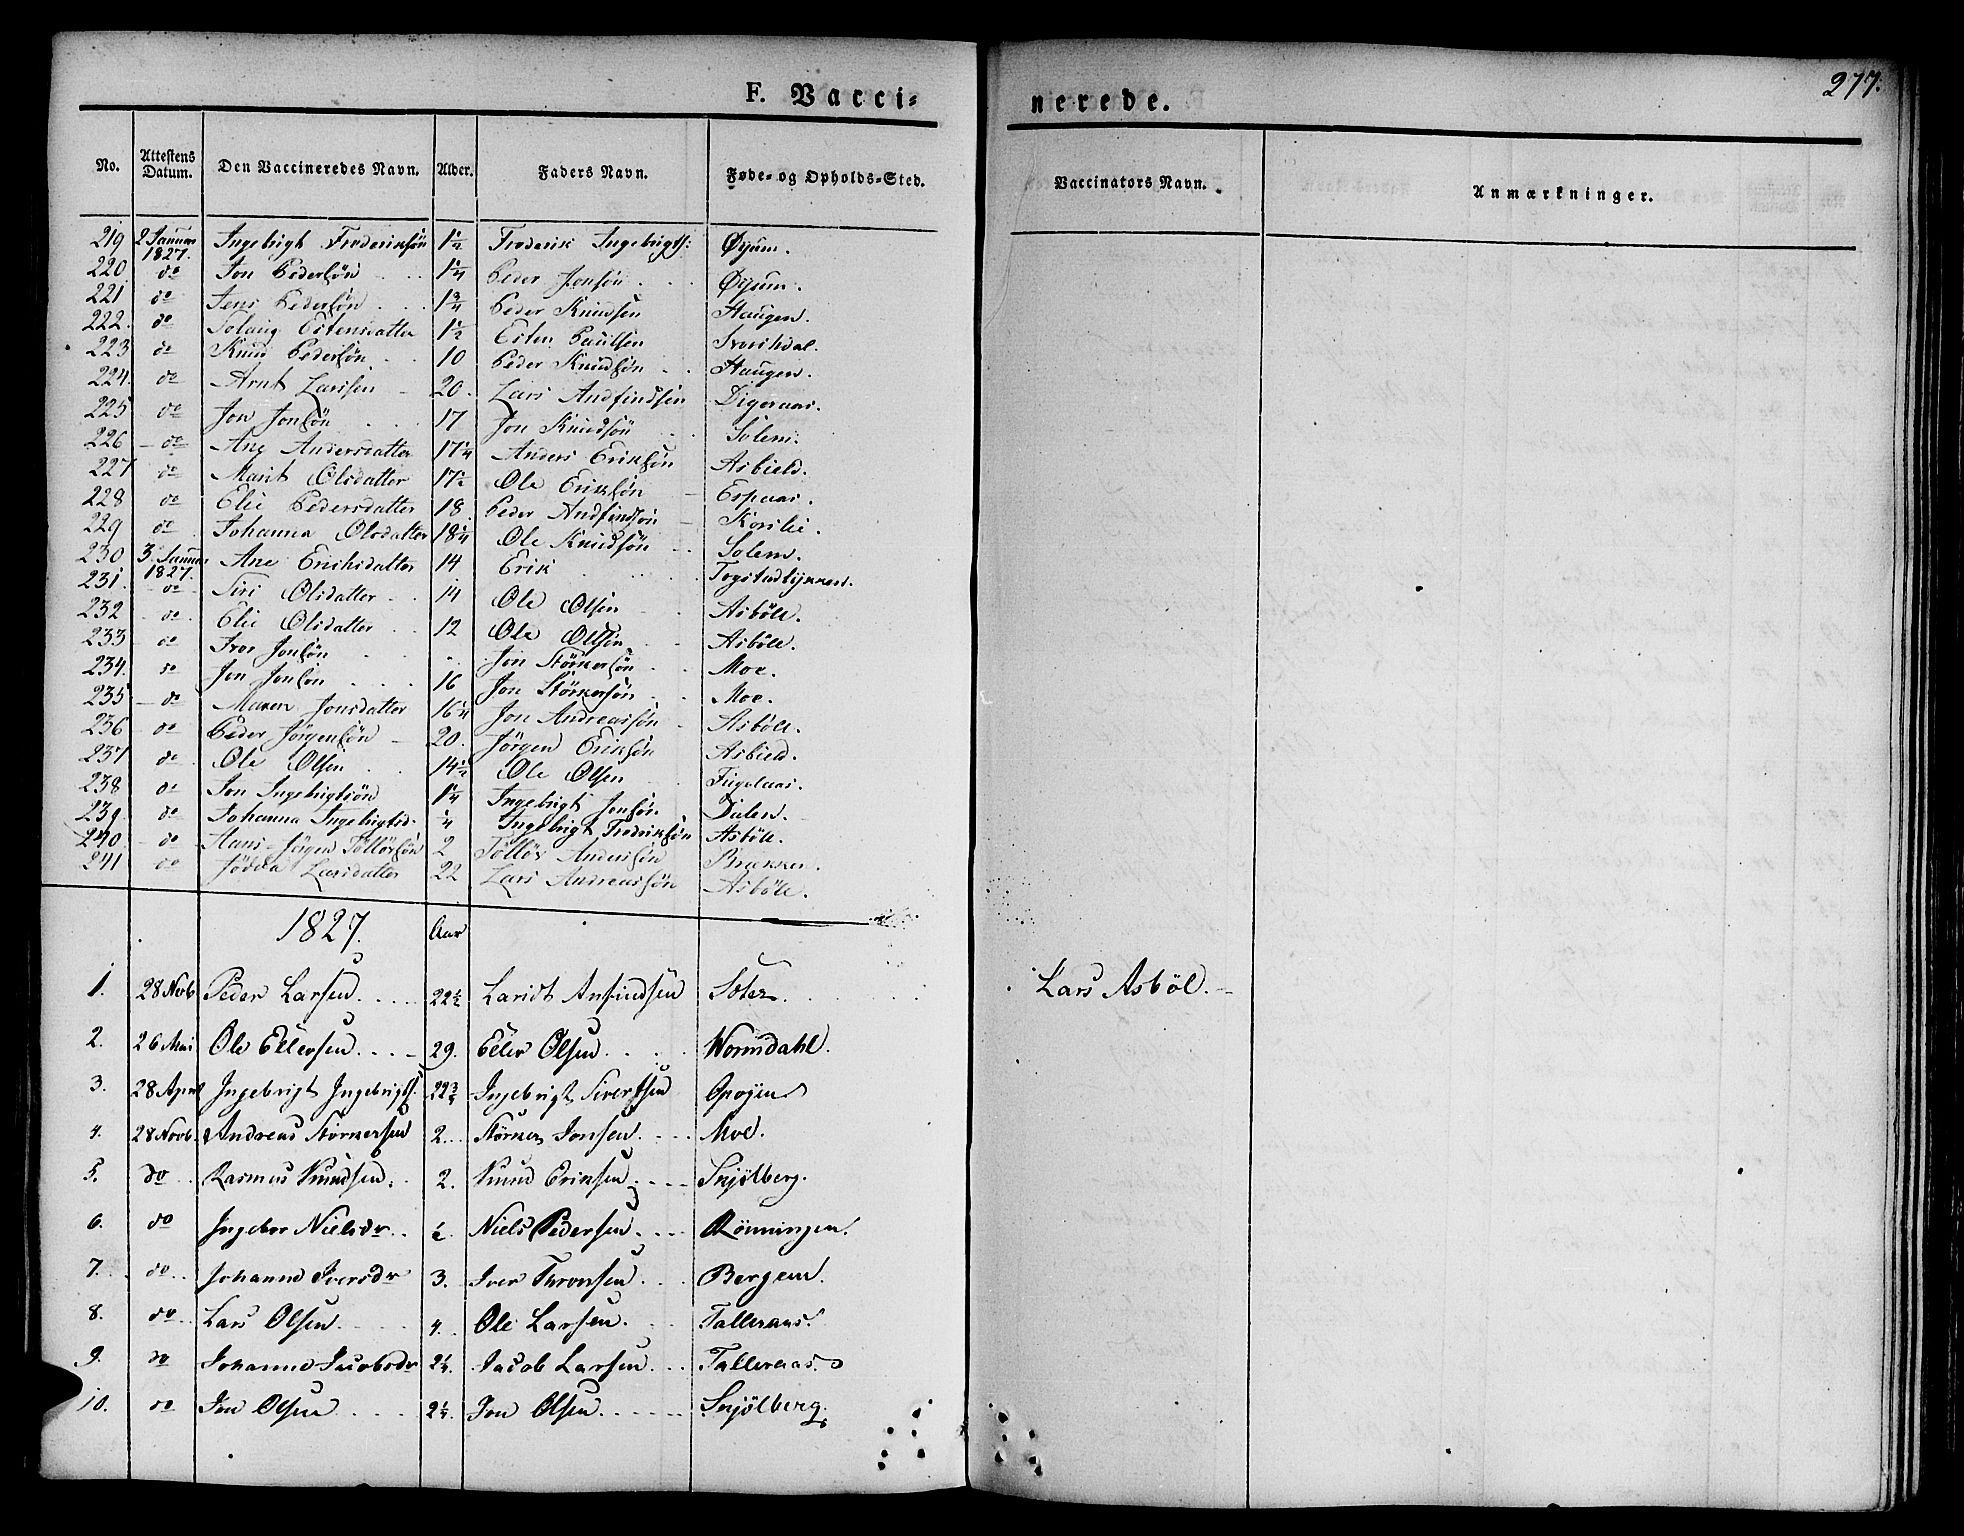 277.
F. Vacci- nerede.
No. Attestens Datum. Den Vaccineredes Navn. Alder. Faders Navn. Føde- og Opholds-Sted. Vaccinators Navn. Anmærkninger.
219 2 Januar 1827. Ingebrigt Frederiksøn 1½ Frederik Ingebrigts: Øyum.
220 do Jon Pedersøn 1¼ Peder Jonsøn Øyum.
221 do Jens Pedersøn 1¾ Peder Knudsen Haugen.
222. do Solaug Estensdatter 1½ Esten Paulsen
223 do Knud Pedersøn 10 Peder Knudsøn Haugen.
224. do Arnt Larssen 20. Lars Andfindsen Digeraas.
225 do Jon Jonsøn 17 Jon Knudsøn Solem.
226 do Ane Andersdatter 17¼ Anders Eriksøn Asbield.
227 do Marit Olsdatter 17½ Ole Eriksøn Espaas.
228 do Elie Pedersdatter 18 Peder Andfindsøn Korslie.
229 do Johanna Olsdatter 18¼ Ole Knudsøn Solem.
230 3. Januar 1827. Ane Erichsdatter 14 Erik Togstadlykken.
231. do Siri Olsdatter 14 Ole Olsen Asbøle.
232 do Elie Olsdatter 12 Ole Olssen Asbøle.
233 do Iver Jonsøn Jon Størkersøn Moe.
234. do Jon Jonsøn 16 Jon Størkersøn Moe.
235 do Maren Jonsdatter 16¼ Jon Andreassøn Asbøle.
236 do Peder Jørgensøn 20. Jørgen Eriksøn Asbield.
237 do Ole Olsen 14½ Ole Olsen Fugelaas.
238 do Jon Ingebrigtsøn 1¼ Ingebrigt Jonsøn Dalen.
239. do Johanna Ingebrigtsd. ¼ Ingebrigt Frederiksøn Asbøle.
240. do Hans Jørgen Tølløfsøn 2 Tølløf Andersøn Brækken.
241 do Larsdatter 22 Lars Andreassøn Asbøle.
1827. Aar
1. 28 Novb Peder Larsen 22½ Laridt Anfindsen Soter. Lars Asbøl.
2. 26 Mai Ole Ellersen 29. Eller Olsen Wormdahl.
3. 28 Apr Ingebrigt Ingebrigts. 22¾ Ingebrigt Sivertsen Opøyen
4. 28 Novb. Andreas Størkersen 2. Størker Jonsen. Moe.
5. do Rasmus Knudsen. 2. Knud Eriksen. Snjølberg.
6. do Ingebor Nielsdr ½. Niels Pedersen. Rønningen.
7. do Johanne Iversdr 3. Iver Thronsen Bergem.
8. do Lars Olsen. 4. Ole Larsen.Талleraas.
9. do Johanne Jacobsdr 2¼. Jacob Larsen. Talleraas.
10. do Jon Olsen 2¼. Jon Olsen. Snjølberg.